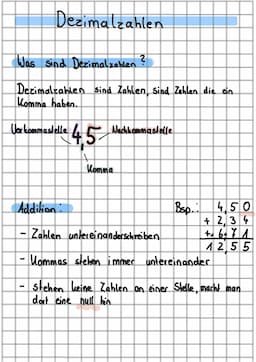 Dezimalzahlen
Was sind Dezimalzahlen?
Dezimalzahlen sind Zahlen, sind Zahlen die ein
Komma haben.
Vorkommastelle 4,5 Nachkommastelle
Komma
Addition: Bsp.: 4,50
+ 2,34
+ 6,71
12 55
- Zahlen untereinanderschreiben
- Kommas stehen immer untereinander
- stehen keine Zahlen an einer Stelle, macht man
dort eine null hin